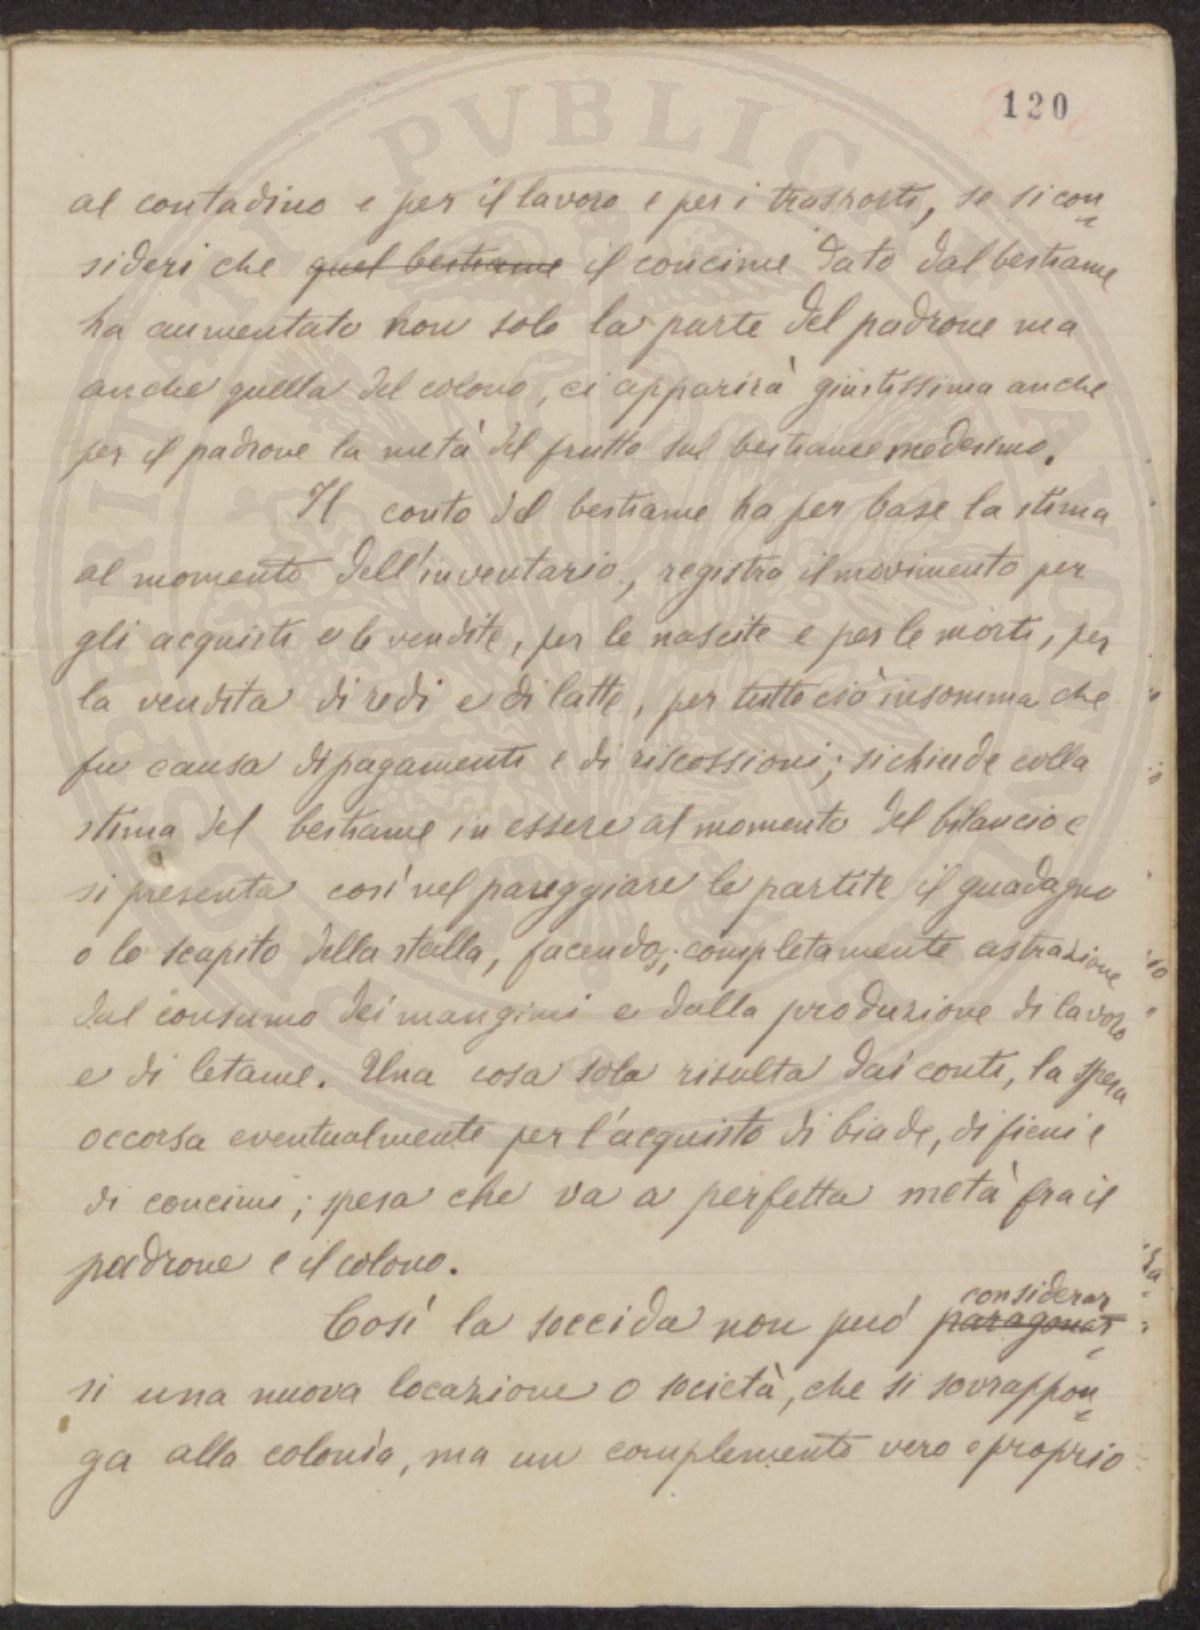 120
al contadino e per il lavoro e per i trasporti, se si con=
sideri che quel bestiame il concime dato dal bestiame
ha aumentato non solo la parte del padrone ma
anche quella del colono, ci apparirà giustissima anche
per il padrone la metà del frutto sul bestiame medesimo.
Il conto del bestiame ha per base la stima
al momento dell'inventario, registra il movimento per
gli acquisti e le vendite, per le nascite e per le morti, per
la vendita di redi e di latte, per tutto ciò insomma che
fu causa di pagamenti e di riscossioni; si chiude colla
stima del bestiame in essere al momento del bilancio e
si presenta così nel pareggiare le partite il guadagno
o lo scapito della stalla, facendosi completamente astrazione
dal consumo dei mangimi e dalla produzione di lavoro
e di letame. Una cosa sola risulta dai conti, la spesa
occorsa eventualmente per l'acquisto di biade, di fieni e
di concimi; spesa che va a perfetta metà fra il
padrone e il colono.
considerar
Così la soccida non può paragonar=
si una nuova locazione o società, che si sovrappon=
ga alla colonìa, ma un complemento vero e proprio